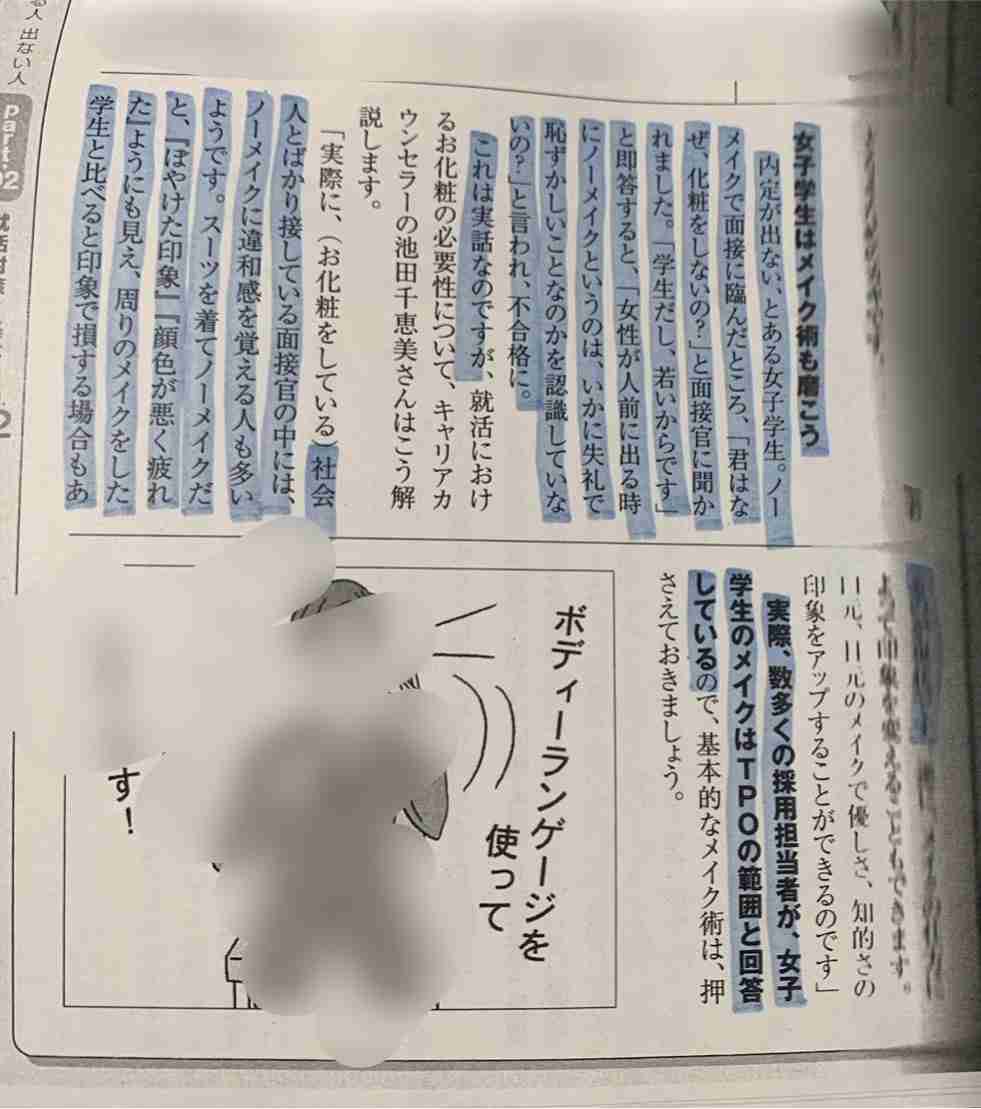 女子学生はメイク術も磨こう
内定が出ない、とある女子学生。ノー
メイクで面接に臨んだところ、「君はな
ぜ、化粧をしないの?」と面接官に聞か
れました。「学生だし、若いからです」
と即答すると、「女性が人前に出る時
にノーメイクというのは、いかに失礼で
恥ずかしいことなのかを認識していな
いの?」と言われ、不合格に。
これは実話なのですが、就活におけ
るお化粧の必要性について、キャリアカ
ウンセラーの池田千恵美さんはこう解
説します。
「実際に、(お化粧をしている)社会
人とばかり接している面接官の中には、
ノーメイクに違和感を覚える人も多い
ようです。スーツを着てノーメイクだ
と、『ぼやけた印象』『顔色が悪く疲れ
た』ようにも見え、周りのメイクをした
学生と比べると印象で損する場合もあ
って印象を変えることもできます。
口元、目元のメイクで優しさ、知的さの
印象をアップすることができるのです」
実際、数多くの採用担当者が、女子
学生のメイクはTPOの範囲と回答
しているので、基本的なメイク術は、押
さえておきましょう。
ボディーランゲージを
使って
す!
る人 出ない人
Part.02